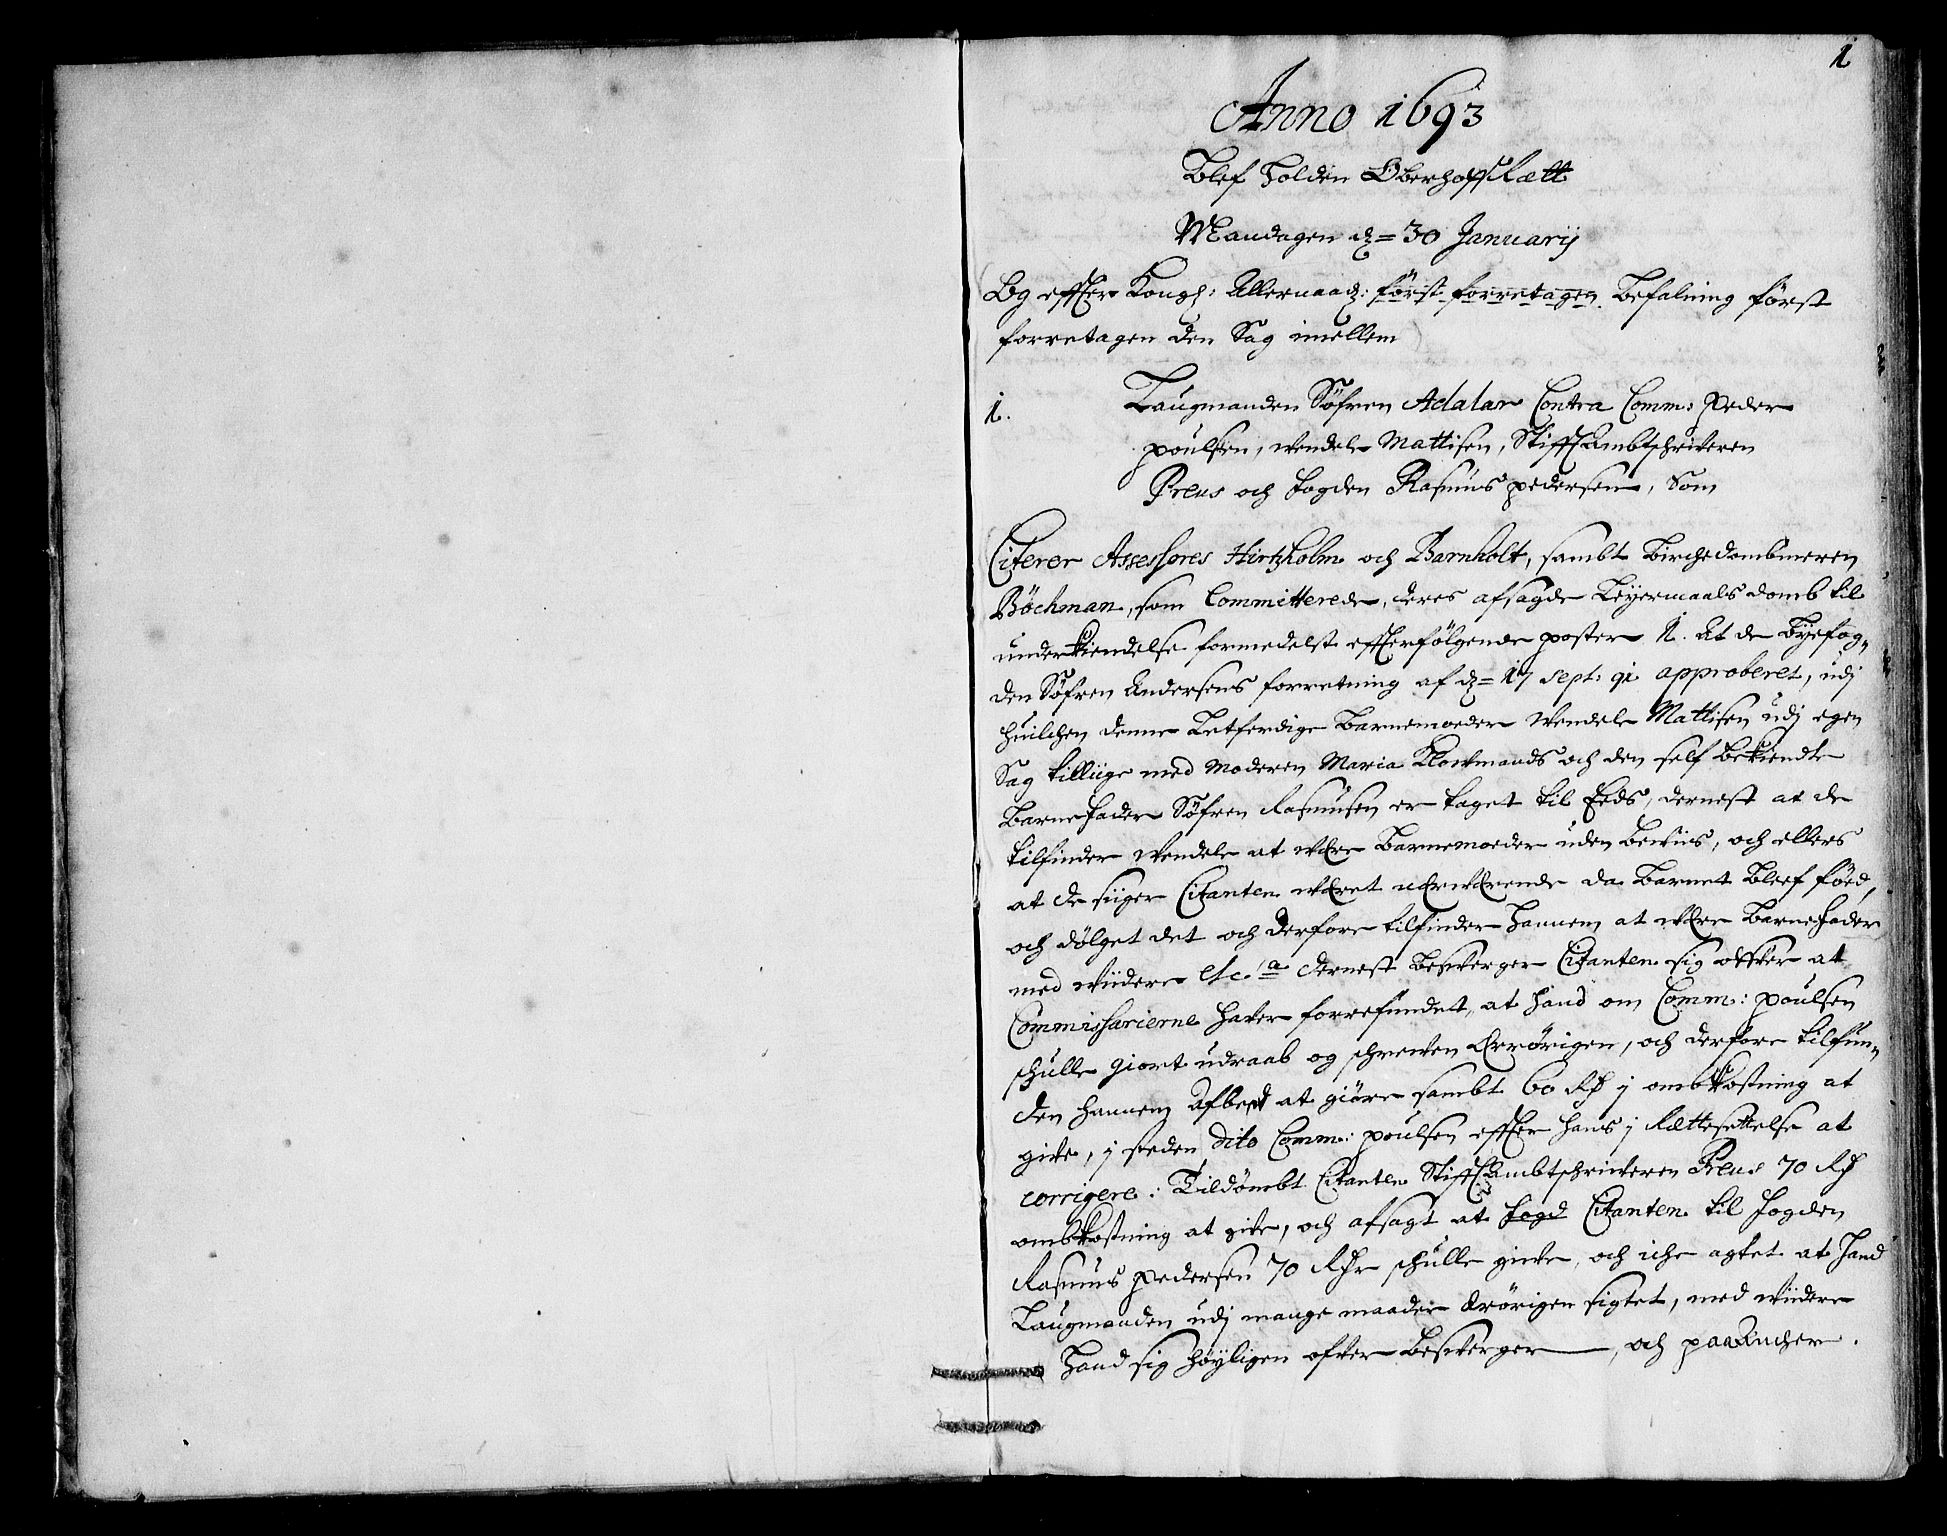 1
Anno 1693
Blef holden Oberhoffrætt
Mandagen d= 30 Januarij
Og effter Kongl: Allernaad: först forretagen Befalning först
forretagen den Sag imellem
1. Laugmanden Söfren Adalar Contra Comm: Peder
poulsen, Wendele Mattisen, StifftAmbtschriveren
Preus och fogden Rasmus pedersen, Som
Citerer Assessores Hirtzholm och Barnholt, sambt Birchedombmeren
Böchman, som Committerede, deres afsagde Leyermaals domb til
underkiendelse formedelst effterfölgende poster 1. At de Byefog„
den Söfren Andersens forretning af d= 17 sept: 91 approberet, udj
huilchen denne Letferdige Barnemoder Wendele Mattisen udj egen
Sag tilliige med Moderen Maria Klockmands och den self bekiendte
Barnefader Söfren Rasmusen er taget til Eeds, dernest at de
tilfinder Wendele at were Barnemoeder uden beviis, och ellers
at de siiger Citanten weret nerwerende da Barnet bleef föed,
och dölget det och derfore tilfinder hannem at were Barnefader
med widere etc.a dernest besverger Citanten sig offver at
Commissarierne hafver forrefundet, at hand om Comm: poulsen
schulle giort udraab og schreven Ærrörigen, och derfore tilfun„
den hannem Afbedt at giöre sambt 60 Rd j ombkostning at
give, j steden dito Comm: poulsen effter hans j Rættesettelse at
corrigere: Tildömbt Citanten StifftAmbtschriveren Preus 70 Rd
ombkostning at give, och afsagt at fogd Citanten til fogden
Rasmus pedersen 70 Rdr schulle give, och iche agtet at hand
Laugmanden udj mange maader ærörigen sigtet, med widere
hand sig höyligen ofver besverger, och paaAncher.